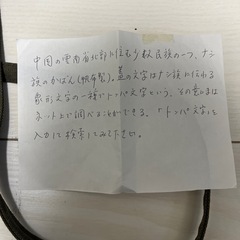 中国の雲南省北部に住む少数民族の一つ、ナシ
族のかばん(帆布製)。蓋の文字はナシ族に伝わる
象形文字の一種でトンパ文字という。その意味は
ネット上で調べることができる。「トンパ文字」と
入力して検索してみて下さい。